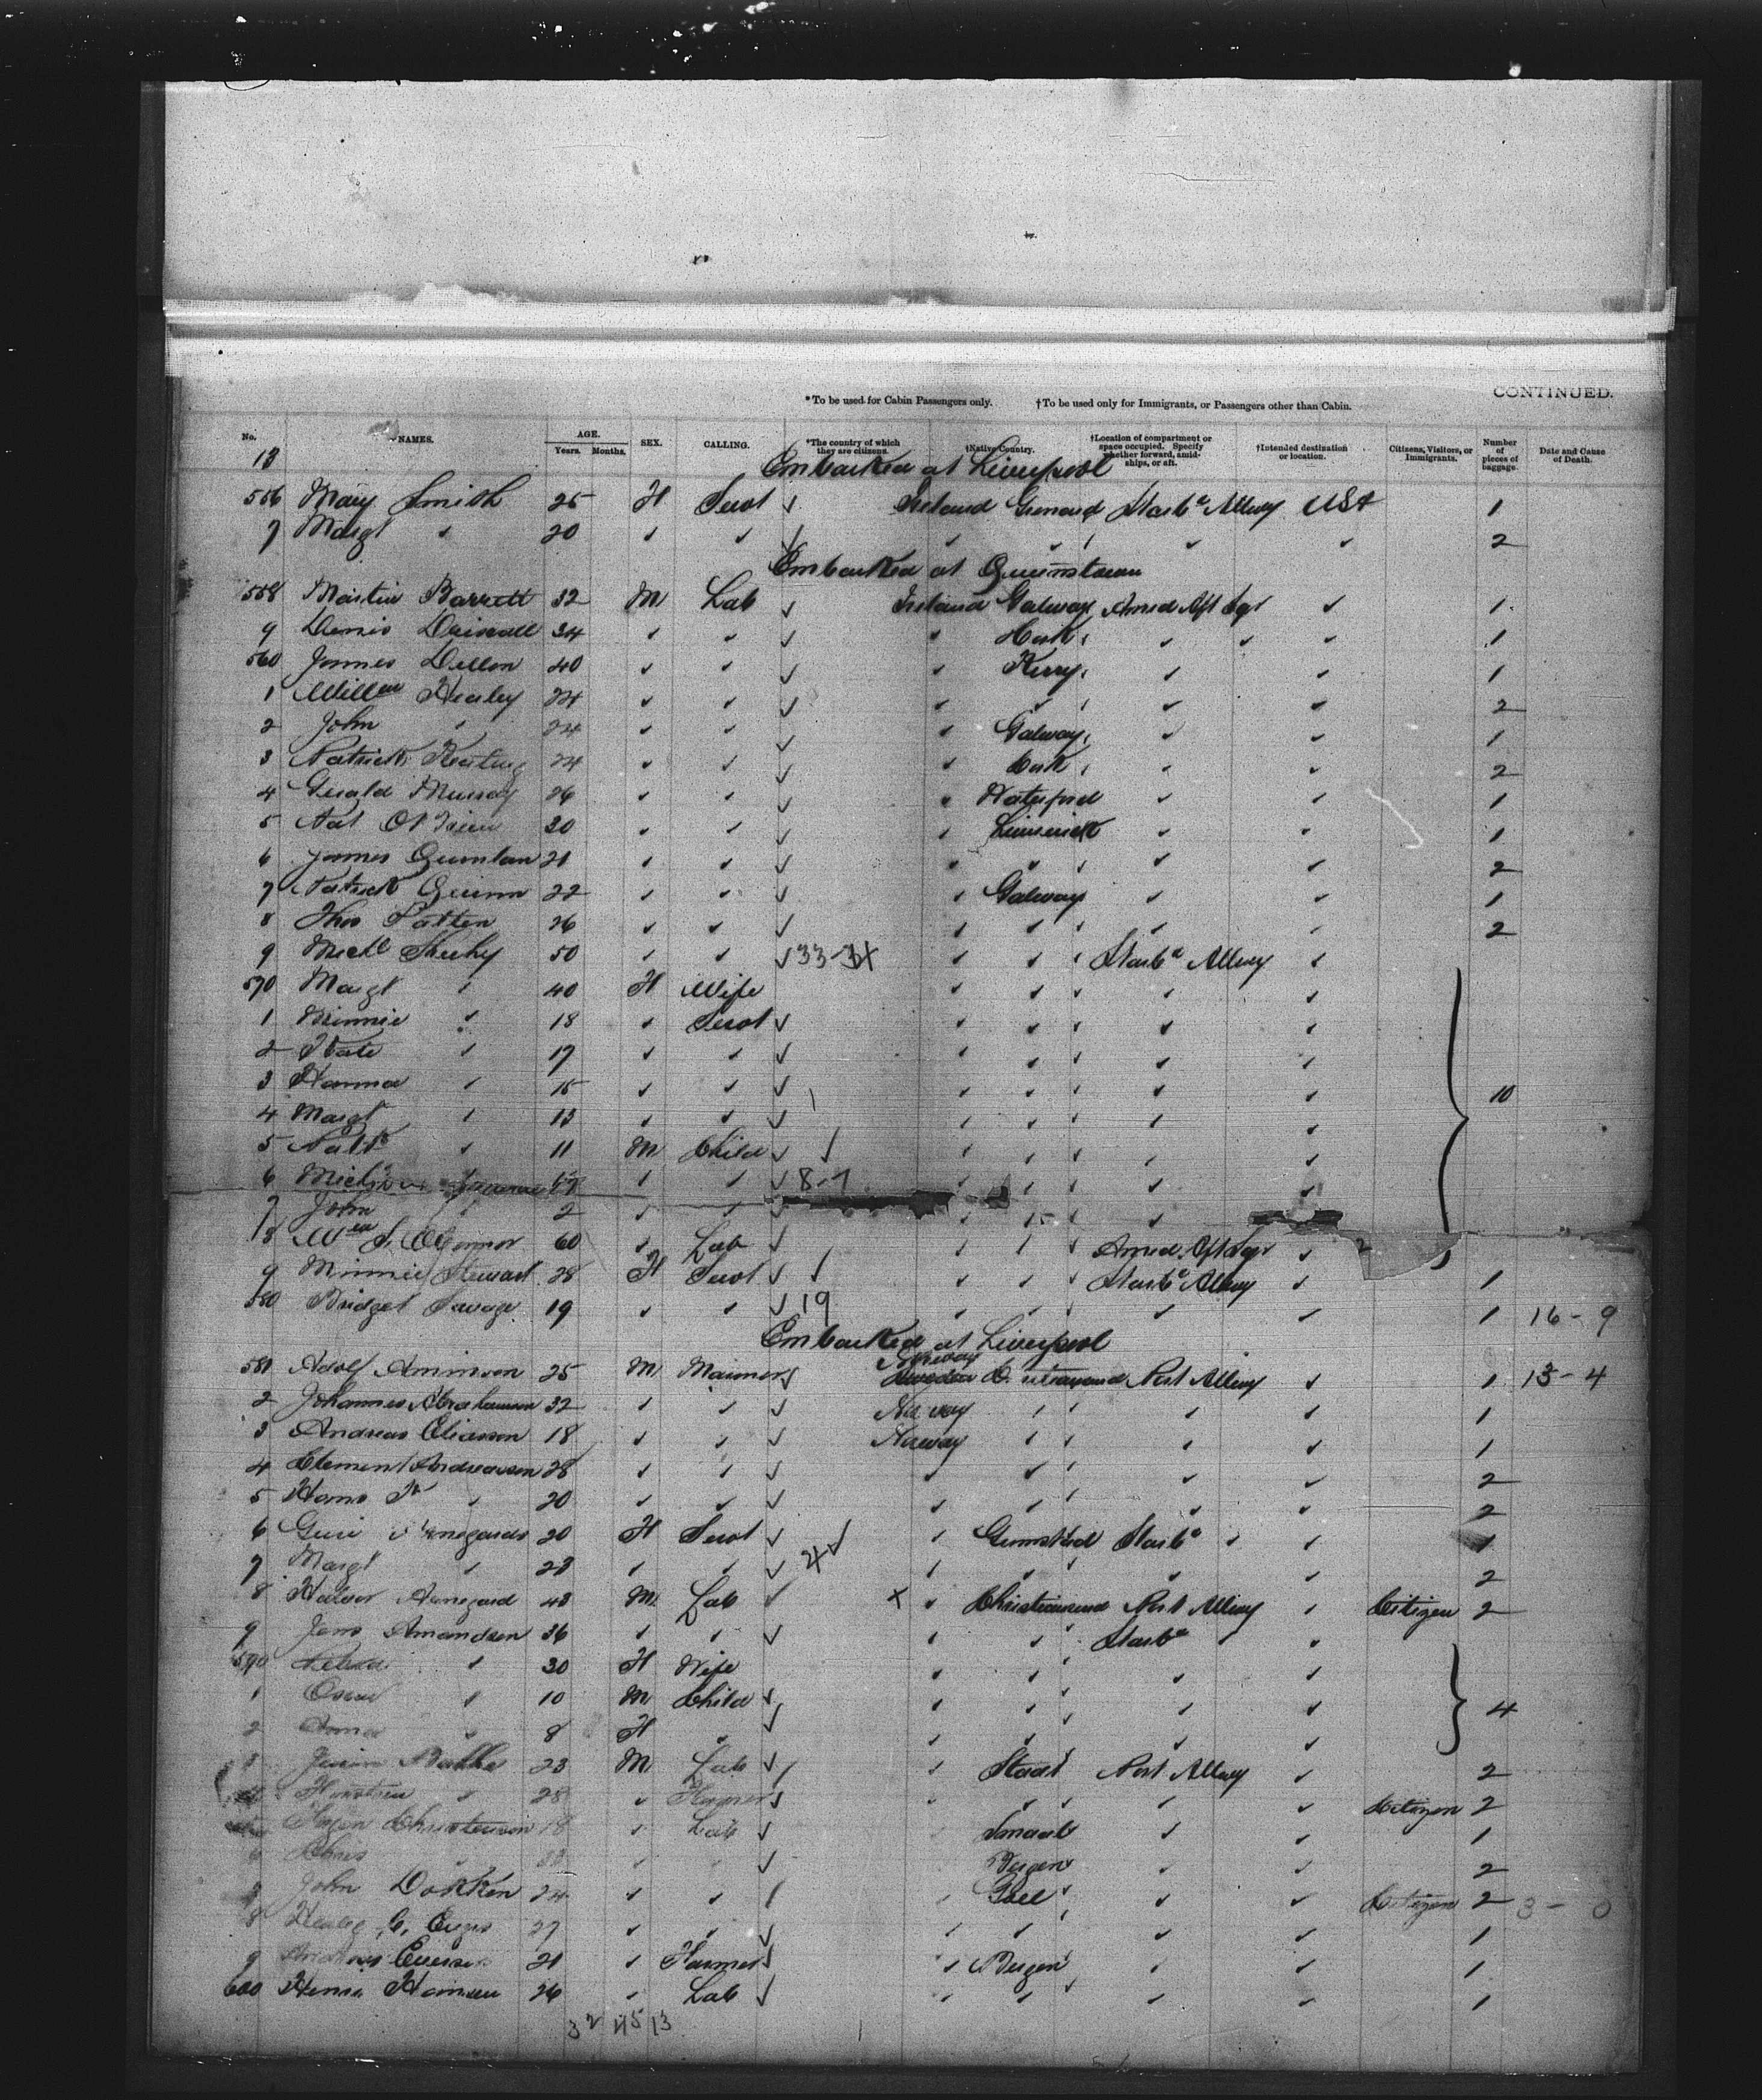 CONTINUED.
*To be used for Cabin Passengers only. †To be used only for Immigrants, or Passengers other than Cabin.
No. NAMES. AGE. Years. Months. SEX. CALLING. *The country of which they are citizens. †Native Country. †Location of compartment or space occupied. Specify whether forward, amidships, or aft. †Intended destination or location. Citizens, Visitors, or Immigrants. Number of pieces of baggage. Date and Cause of Death.
13
Embarked at Liverpool
556 Mary Smith 25 F Servt ✓ Ireland Starbd Allway USA 1
7 Margt " 20 " " ✓ " " " " 2
Embarked at Queenstown
558 Martin Barrett 32 M Lab ✓ Ireland Galway Amid Aft " 1
9 Denis Driscoll 34 " " ✓ " Cork " " 1
560 James Dillon 40 " " ✓ " Kerry " " 1
1 Willm Healey 24 " " ✓ " " " " 2
2 John " 24 " " ✓ " Galway " " 1
3 Patrick Keating 24 " " ✓ " Cork " " 2
4 Gerald Murray 26 " " ✓ " Waterford " " 1
5 Pat O'Brien 30 " " ✓ " Limerick " " 1
6 James Quinlan 21 " " ✓ " " " " 2
7 Patrick Quinn 22 " " ✓ " Galway " " 1
8 Thos Patten 26 " " ✓ " " " " 2
9 Michl Sheehy 50 " " ✓ 33-34 " " Starbd Allway "
570 Margt " 40 F Wife " " " "
1 Minnie " 18 " Servt ✓ " " " "
2 Kate " 17 " " ✓ " " " "
3 Hanna " 15 " " ✓ " " " " 10
4 Margt " 13 " " ✓ " " " "
5 Patk " 11 M Child ✓ " " " "
6 Michl " " ✓ 8-7 " " " "
7 John " 2 " " ✓ " " "
8 Wm S. O'Connor 60 " Lab ✓ " " Amid Aft " 2
9 Minnie Stewart 28 F Servt ✓ " " Starbd Allway " 1
580 Bridget Savage 19 " " ✓ 19 " " " " 1 16-9
Embarked at Liverpool
581 Adolf Aminson 25 M Mariner ✓ Norway Port Allway " 1 13-4
2 Johannes Abrahamson 32 " " ✓ Norway " " " 1
3 Andreas Eliasson 18 " " ✓ Norway " " " 1
4 Clement Andreasson 28 " " ✓ " " " " 2
5 Hans " 20 " " ✓ " " " " 2
6 20 F Servt ✓ " Starbd " " 1
7 Margt " 23 " " ✓ " " " " 2
8 43 M Lab ✓ x " Christiansund Port Allway " Citizen 2
9 Jens Amandsen 36 " " ✓ " " Starbd "
590 " 30 F Wife " " " "
1 Oscar " 10 M Child ✓ " " " " 4
2 Anna " 8 F " ✓ " " " "
3 23 M Lab ✓ " Stadt Port Allway " 2
28 " Farmer ✓ " " " " Citizen 2
Christenson 18 " Lab ✓ " " " 1
" " ✓ Bergen " " 2
John Dokken 24 " " " " " Citizen 2 3-0
8 27 " " ✓ " " " " 1
9 21 " Farmer ✓ " Bergen " " 1
600 26 " Lab ✓ " " " " 1
32 45 13